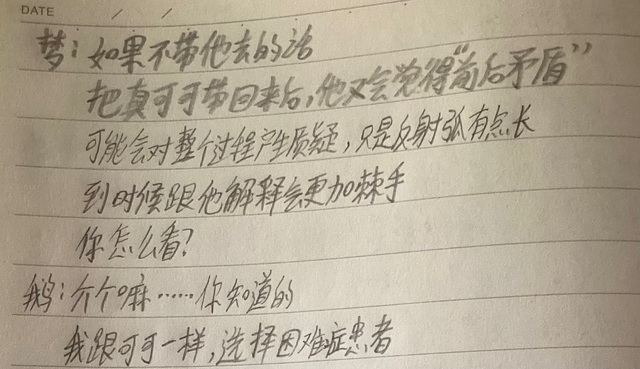 DATE / /
梦：如果不带他去的话
把真可可带回来后，他又会觉得“前后矛盾”
可能会对整个过程产生质疑，只是反射弧有点长
到时候跟他解释会更加棘手
你怎么看？
鹅：介个嘛……你知道的
我跟可可一样，选择困难症患者